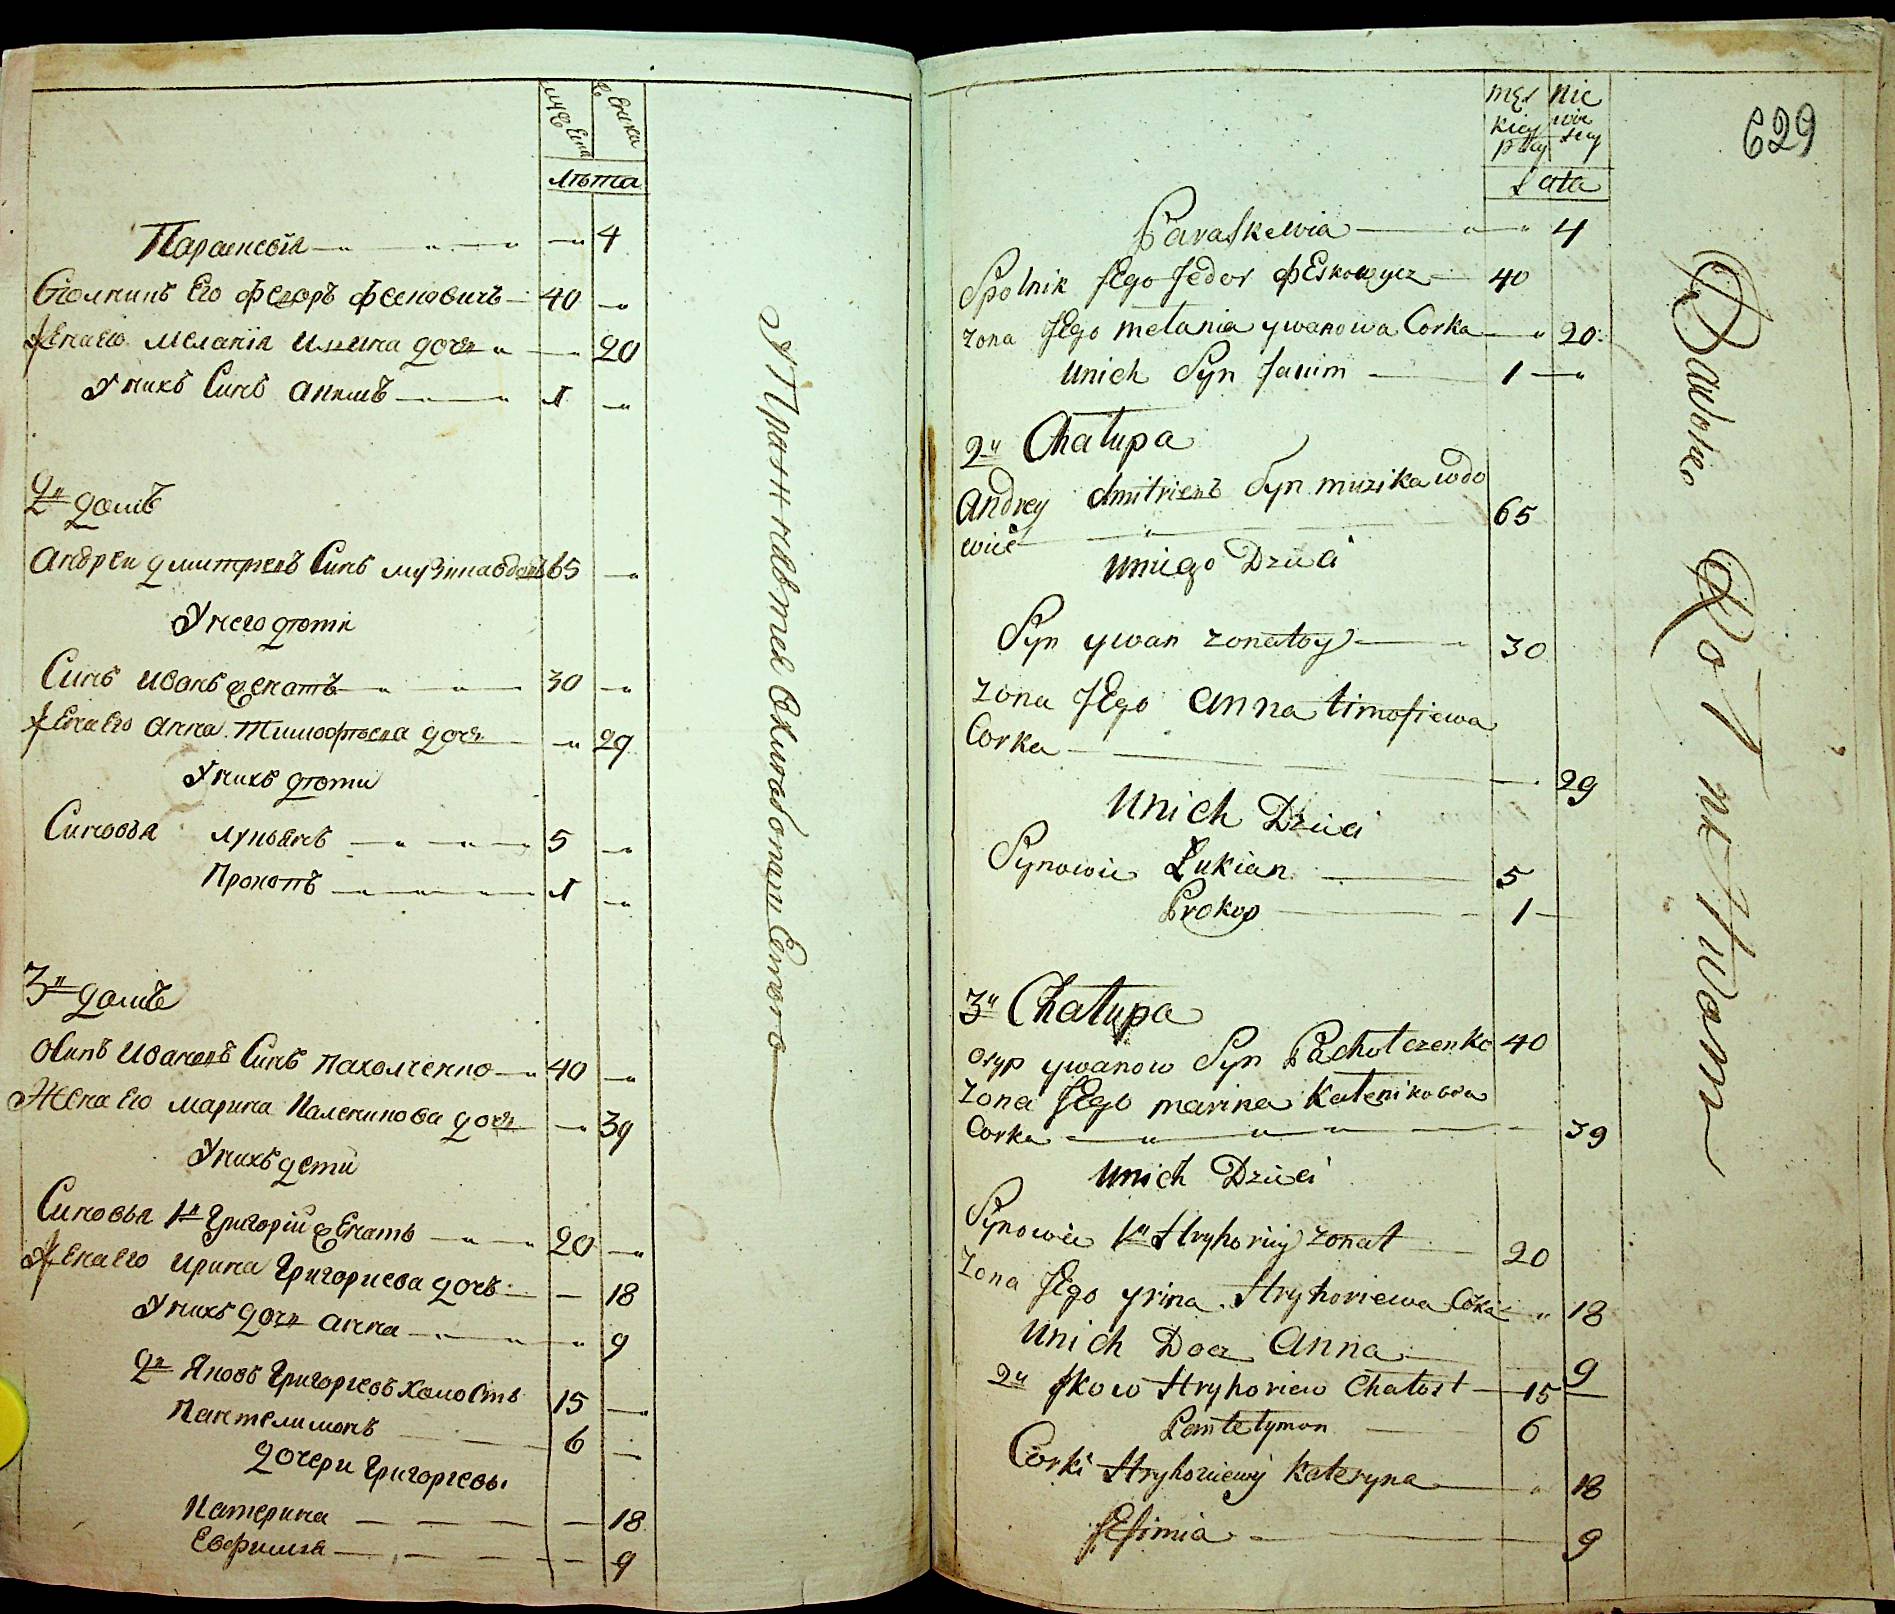 мужеска женска
лѣта
Параскевїя 4
Столникъ Его Федоръ Феськовичъ 40
Жена Его Меланїя Ивана дочь 20
У нихъ Синъ Акимъ 1
2й домъ
Андрей дмитриевъ Синъ музика вдовъ 65
У него дѣти
Синъ Иванъ женатъ 30
Жена Его Анна Тимофѣева дочь 29
У нихъ дѣти
Синовья Лукьянъ 5
Прокопъ 1
3й домъ
Осипъ Ивановъ Синъ Пахолченко 40
Жена Его Марина Каленикова дочь 39
У нихъ дети
Синовья 1й Григорїй женатъ 20
Жена Его Ирина Григориева дочь 18
У нихъ дочь Анна 9
2й Яковъ Григориевъ Холостъ 15
Пантелимонъ 6
дочери Григориевы
Катерина 18
Евфимия 9
629
męs kiey płcy nie wie sciey
Lata
Paraskewia 4
Spolnik JEgo Fedor Feskowycz 40
Zona JEgo Melania ywanowa Corka 20
Unich Syn Jakim 1
2й Chałupa
Andrey dmitriewъ Syn muzika wdo
wiec 65
Uniego Dzieci
Syn ywan zonatoy 30
Zona JEgo Anna timofiewa
Corka 29
Unich Dzieci
Synowie Łukian 5
Prokop 1
3й Chałupa
Osyp ywanow Syn Pachołczenko 40
Zona JEgo marina Kalenikowa
Corka 39
Unich Dzieci
Synowie 1й Hryhoriy zonat 20
Zona JEgo yrina Hryhoriewa Corka 18
Unich Docz Anna 9
2й Jkow Hryhoriew Chałost 15
Pantelymon 6
Corki Hryhoriewy Kateryna 18
JEfimia 9